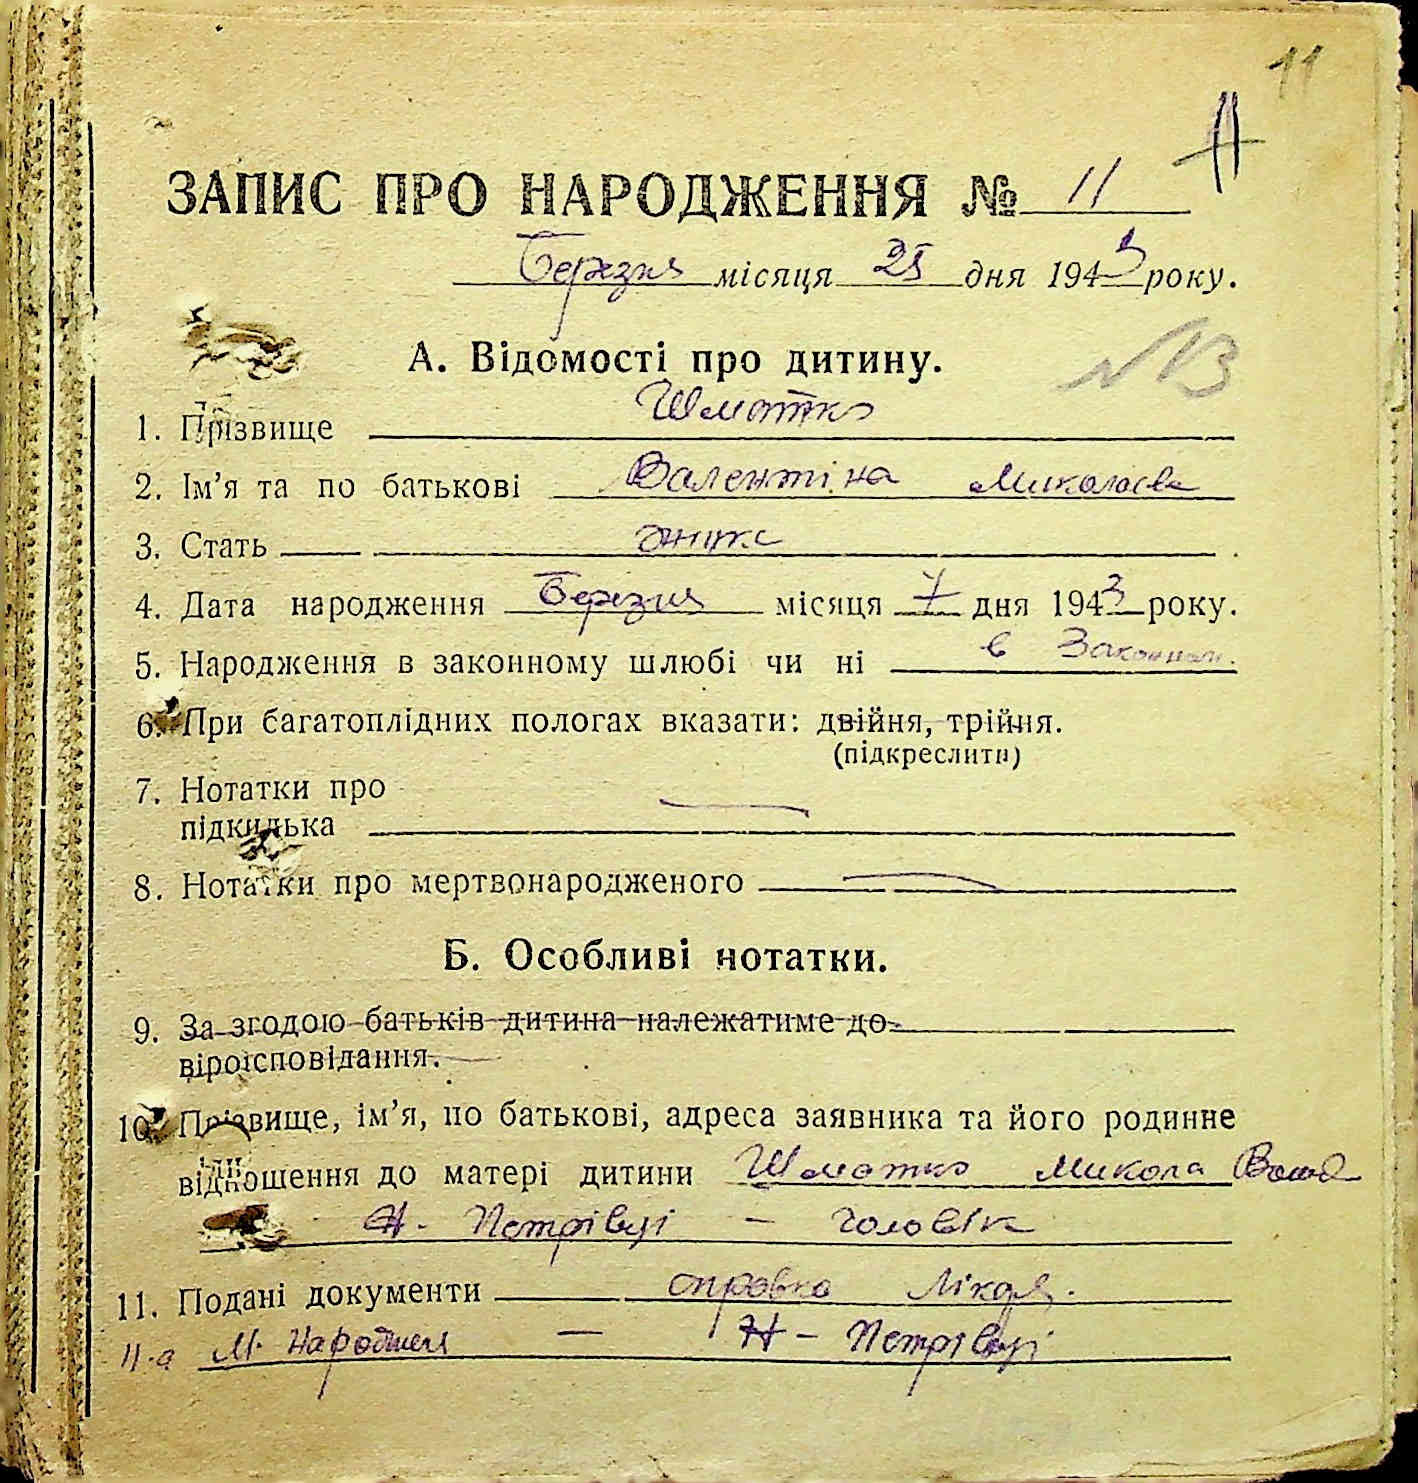 11
11
ЗАПИС ПРО НАРОДЖЕННЯ № 11
Березня місяця 25 дня 1943 року.
А. Відомості про дитину.
№ 13
1. Прізвище Шматко
2. Ім'я та по батькові Валентіна Миколаєв
3. Стать жіноч
4. Дата народження Березня місяця 7 дня 1943 року.
5. Народження в законному шлюбі чи ні в Законном.
6. При багатоплідних пологах вказати: двійня, трійня.
(підкреслити)
7. Нотатки про
підкидька
8. Нотатки про мертвонародженого
Б. Особливі нотатки.
9. За згодою батьків дитина належатиме до
віроісповідання.
10. Прізвище, ім'я, по батькові, адреса заявника та його родинне
відношення до матері дитини Шматко Микола
Н. Петрівці – Чоловік
11. Подані документи справка Лікаря.
11-а М. Народжен — Н – Петрівці